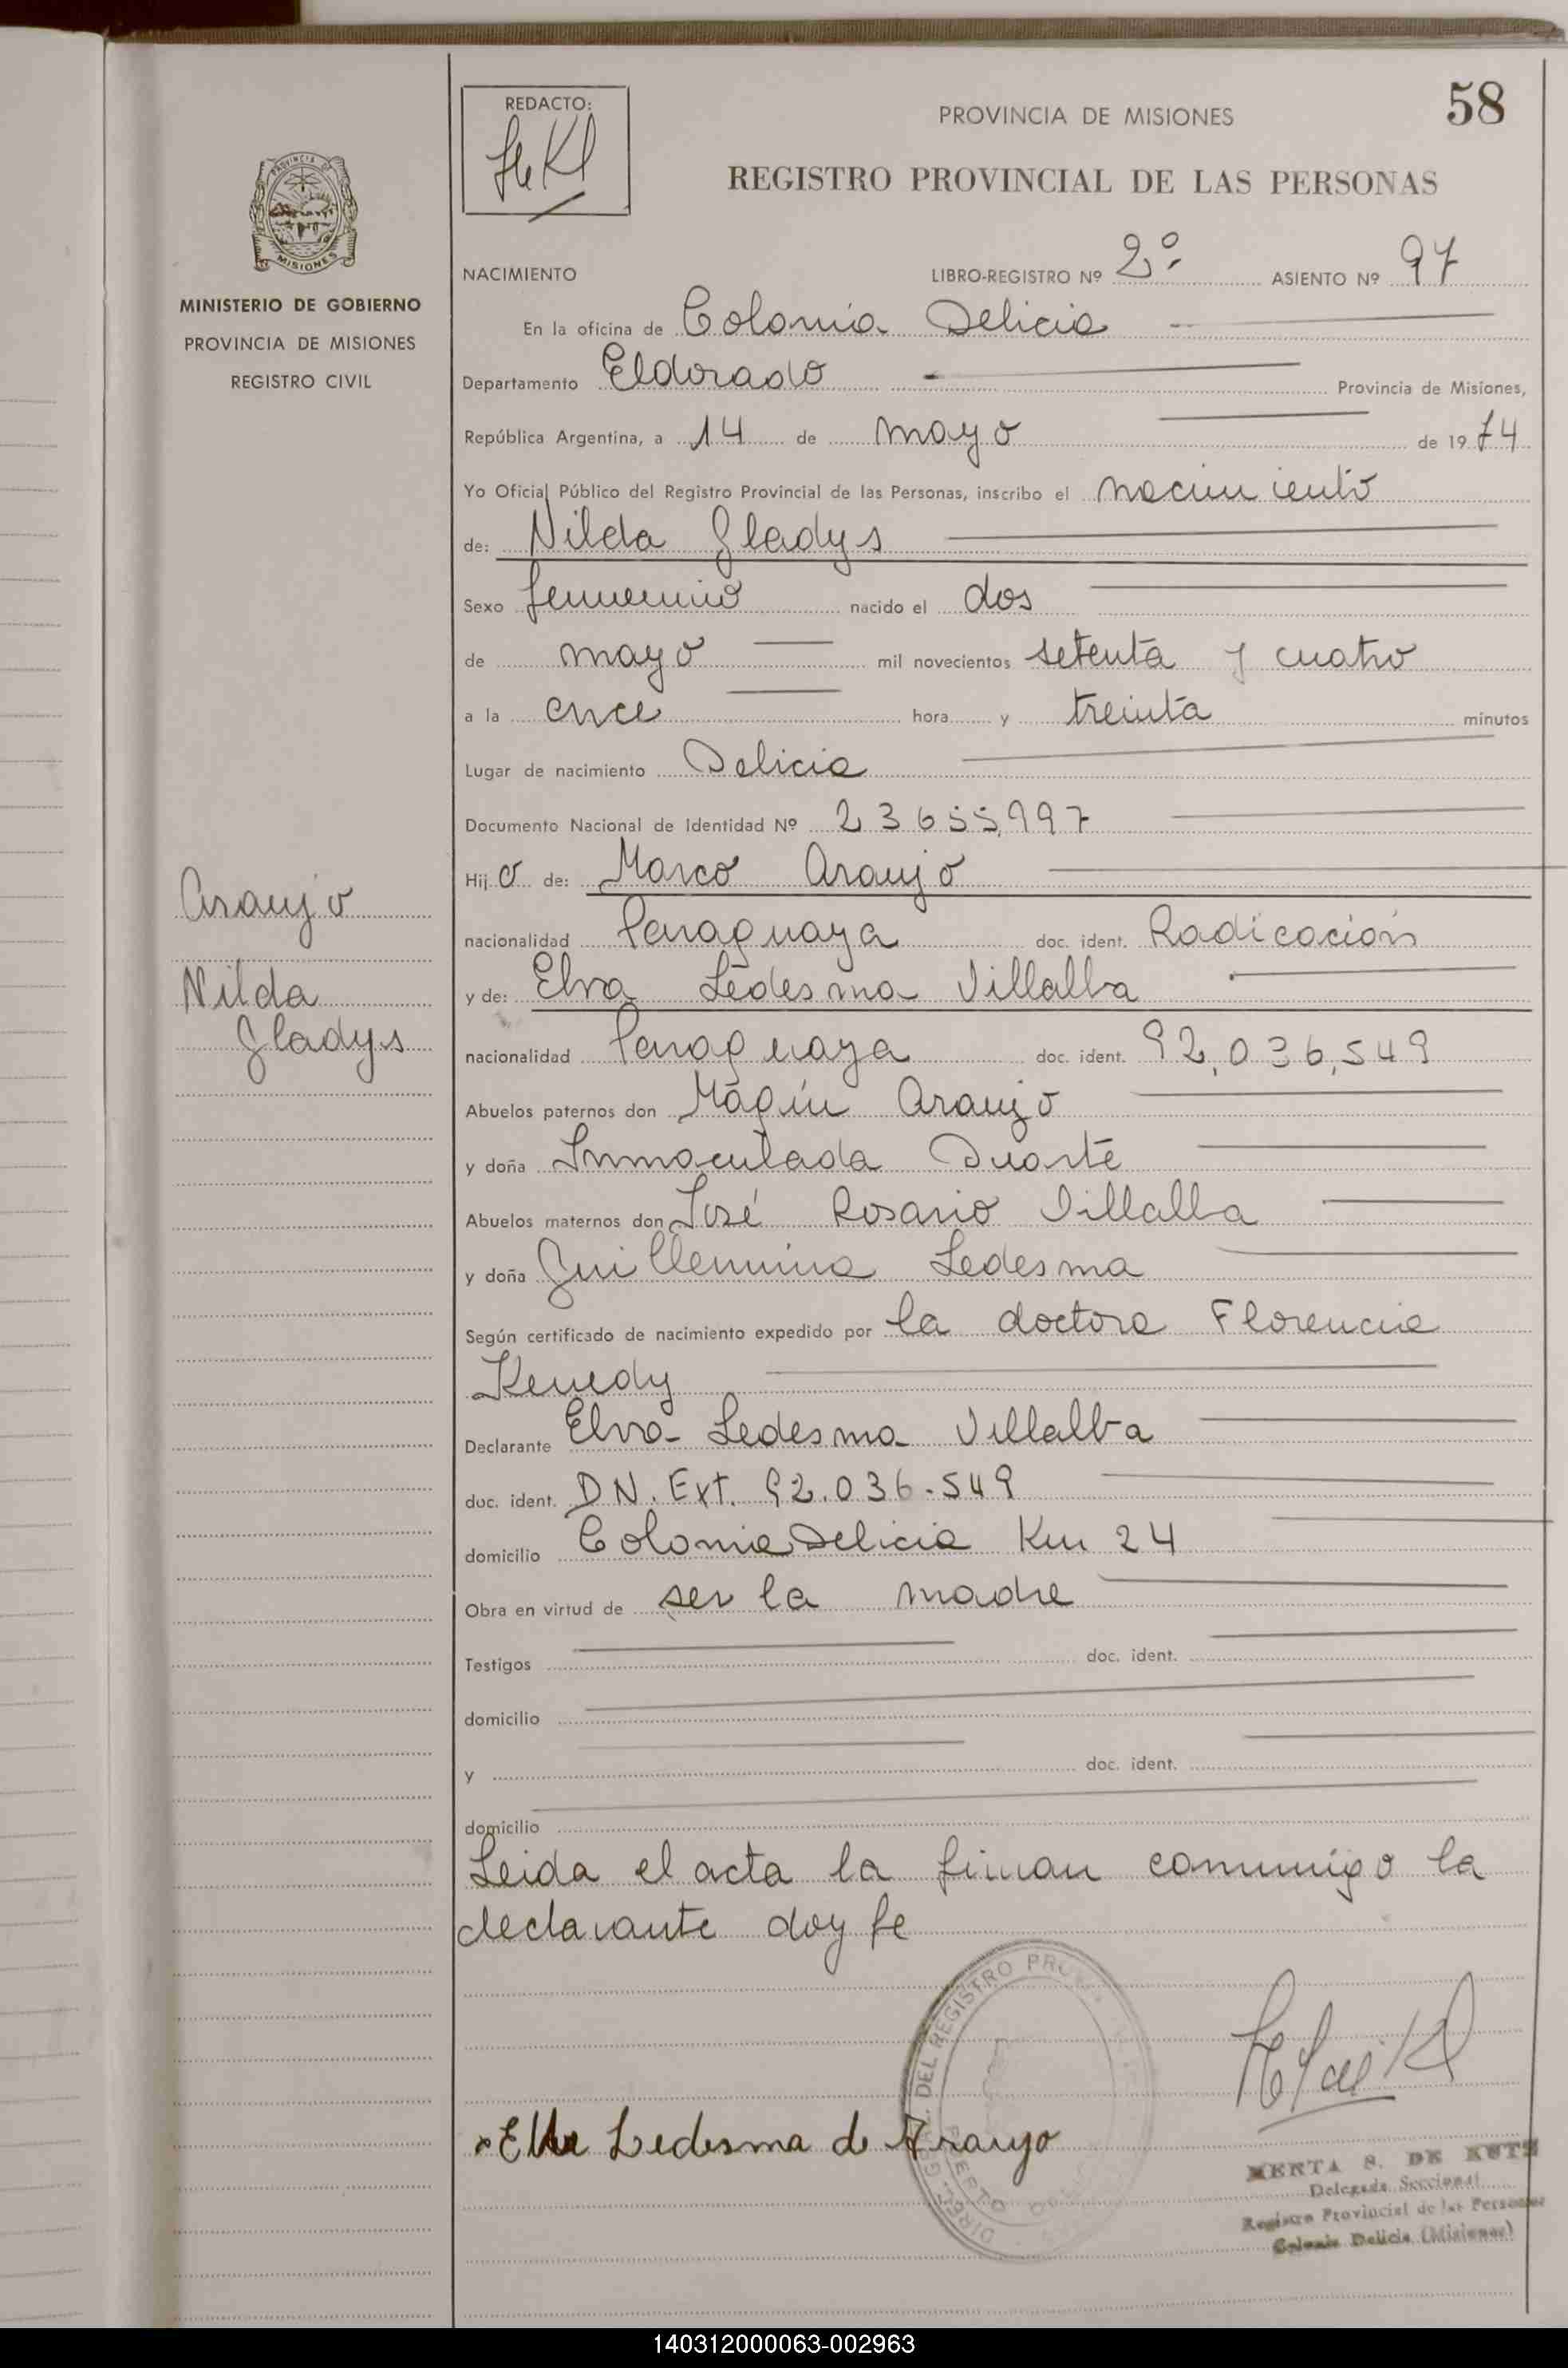 58
REDACTO:
PROVINCIA DE MISIONES
REGISTRO PROVINCIAL DE LAS PERSONAS
PROVINCIA DE
MISIONES
MINISTERIO DE GOBIERNO
PROVINCIA DE MISIONES
REGISTRO CIVIL
NACIMIENTO LIBRO-REGISTRO Nº 2º ASIENTO Nº 97
En la oficina de Colonia Delicia
Departamento Eldorado Provincia de Misiones,
República Argentina, a 14 de mayo de 1974
Yo Oficial Público del Registro Provincial de las Personas, inscribo el nacimiento
de: Nilda Gladys
Sexo femenino nacido el dos
de mayo mil novecientos setenta y cuatro
a la once hora y treinta minutos
Lugar de nacimiento Delicia
Documento Nacional de Identidad Nº 23655,997
Hij a de: Marco Araujo
nacionalidad Paraguaya doc. ident. Radicación
y de: Elva Ledesma Villalba
nacionalidad Paraguaya doc. ident. 92,036,549
Abuelos paternos don Magín Araujo
y doña Inmaculada Duarte
Abuelos maternos don José Rosario Villalba
y doña Guillermina Ledesma
Según certificado de nacimiento expedido por la doctora Florencia
Kenedy
Declarante Elva Ledesma Villalba
doc. ident. DN. Ext. 92.036.549
domicilio Colonia Delicia Km 24
Obra en virtud de ser la madre
Testigos doc. ident.
domicilio
y doc. ident.
domicilio
Leida el acta la firman conmigo la
declarante doy fe
Araujo
Nilda
Gladys
DEL REGISTRO
Ledesma de Araujo
S. DE
Delegada Seccional
Registro Provincial de las Personas
Colonia Delicia (Misiones)
140312000063-002963